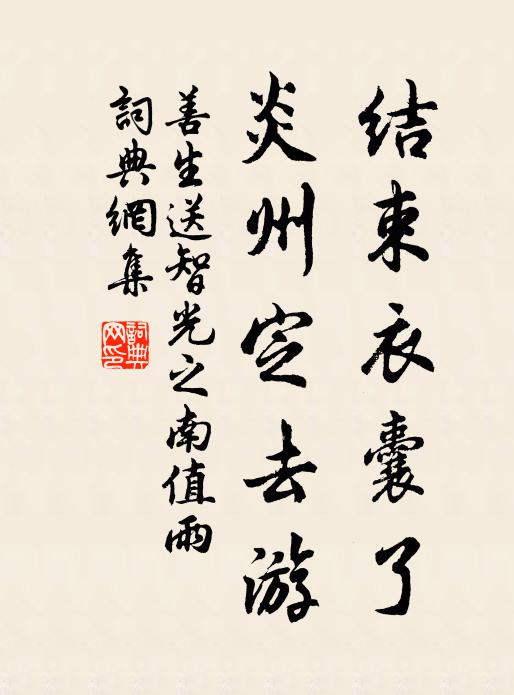 结束衣囊了
炎州定去游
善生送智光之南值雨
詞典網集
詞典網印